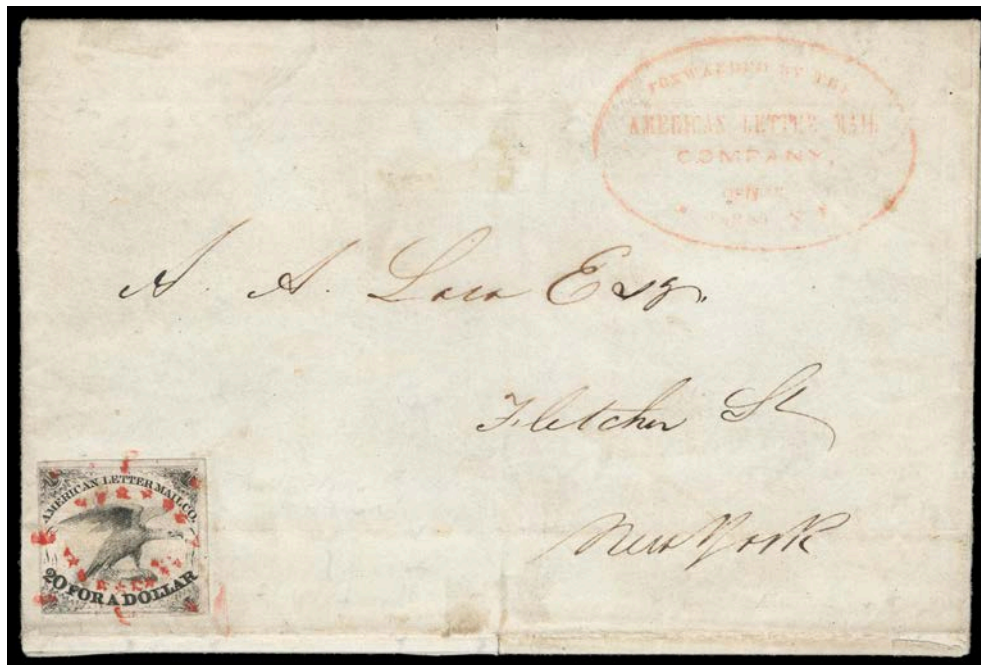 FORWARDED BY THE
AMERICAN LETTER MAIL
COMPANY,
A. A. Low Esq.
Fletcher St
New York
AMERICAN LETTER MAIL CO.
20 FOR A DOLLAR